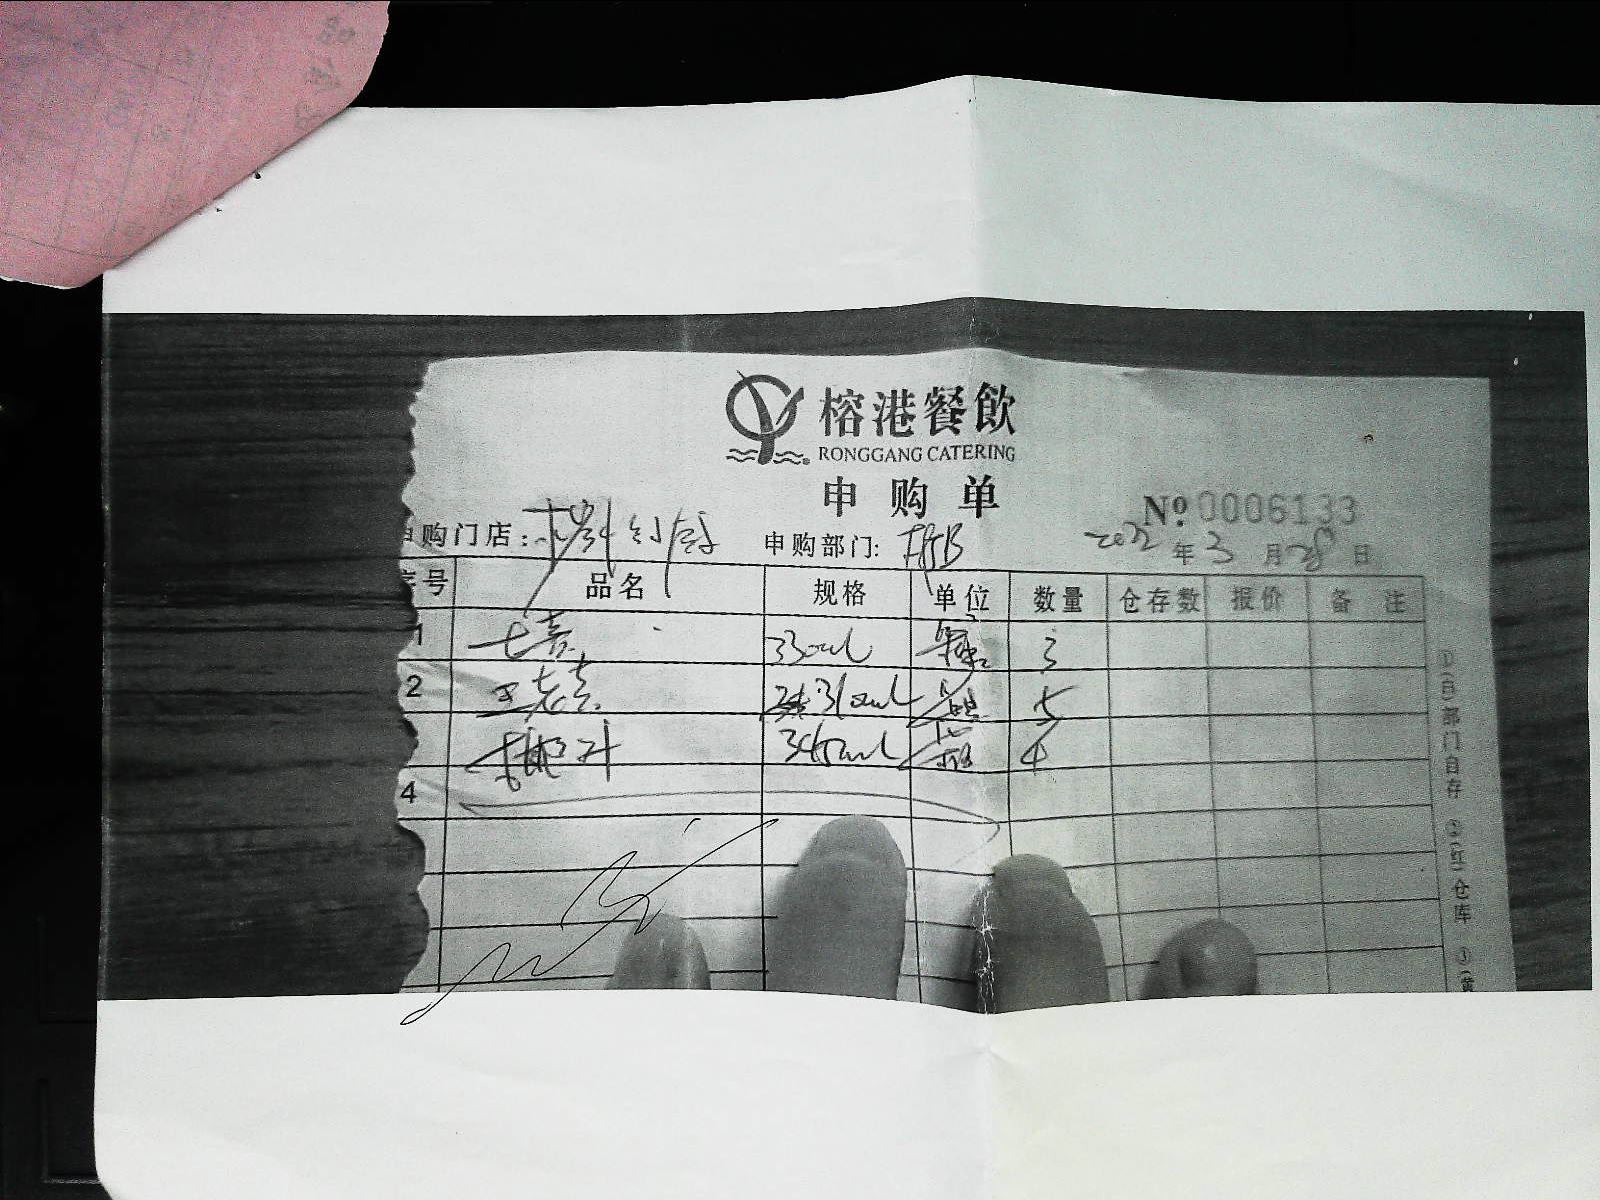 榕港餐飲
RONGGANG CATERING
申购单
No 0006133
申购门店: 申购部门: 2022年3月28日
序号 品名 规格 单位 数量 仓存数 报价 备注
1 七喜 330ml 罐 3
2 王老吉 310ml 罐 5
345ml 4
4
①(白)部门自存 ②(红)仓库 ③(黄